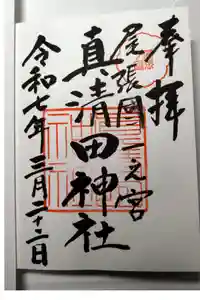 奉拝
尾張國一之宮
真清田神社
令和七年三月二十二日